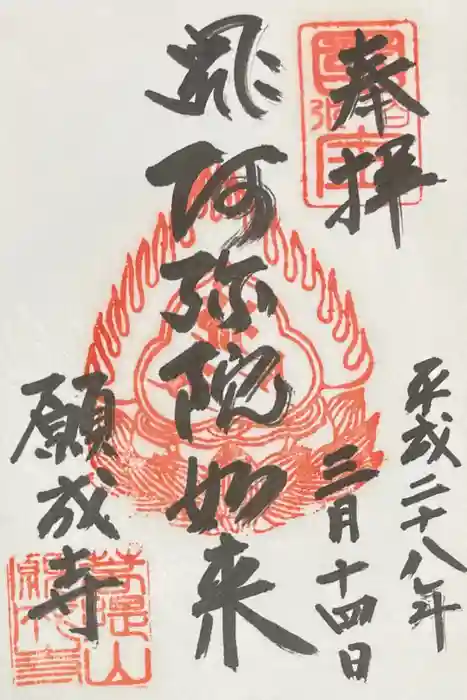 奉拝
平成二十八年
三月十四日
阿弥陀如来
願成寺